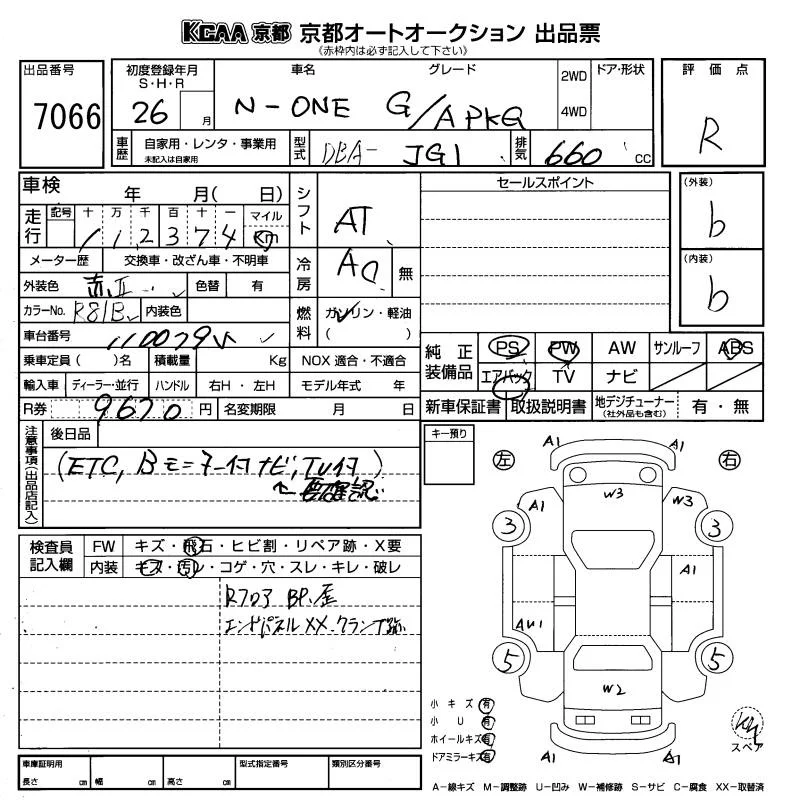 KCAA 京都 京都オートオークション 出品票
(赤枠内は必ず記入して下さい)
出品番号
7066
初度登録年月
S・H・R
26 月
車名 グレード
N-ONE G/A PKG
2WD
4WD
ドア・形状
評価点
R
車歴
自家用・レンタ・事業用
未記入は自家用
型式
DBA- JG1
排気
660 cc
車検 年 月( 日)
走行
記号 十 万 千 百 十 一 マイル
1 1 2 3 7 4 km
メーター歴 交換車・改ざん車・不明車
外装色 赤II 色替 有
カラーNo. R81B 内装色
車台番号
乗車定員 ( )名 積載量 Kg
輸入車 ディーラー・並行 ハンドル 右H・左H
R券 9670 円 名変期限 月 日
シフト
AT
冷房
AC 無
燃料
ガソリン・軽油
( )
NOX 適合・不適合
モデル年式 年
セールスポイント
(外装)
b
(内装)
b
純正装備品
PS PW AW サンルーフ ABS
エアバック TV ナビ
新車保証書 取扱説明書 地デジチューナー (社外品も含む) 有・無
注意事項(出品店記入)
後日品
(ETC, Bモニター付ナビ,TV付)
←要確認
キー預り
検査員記入欄
FW キズ・飛石・ヒビ割・リペア跡・X要
内装 キズ・汚レ・コゲ・穴・スレ・キレ・破レ
Rフロア BP.歪
エンドパネルXX.クランプ跡
左 右
A1 A1
A1 W3 W3
3 3
A1
AU1
5 5
W2
A1 A1
小キズ 有
小U 有
ホイールキズ 有
ドアミラーキズ 有
スペア
車庫証明用
長さ cm 幅 cm 高さ cm
型式指定番号 類別区分番号
A-線キズ M-調整跡 U-凹み W-補修跡 S-サビ C-腐食 XX-取替済